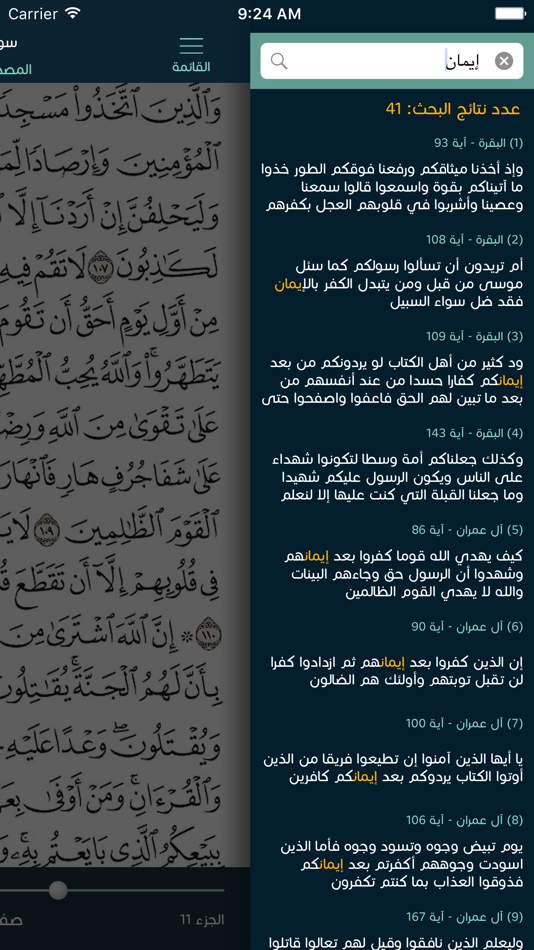 Carrier
9:24 AM
سو
القائمة
المصح
إيمان
عدد نتائج البحث: 41
(1) البقرة - آية 93
وإذ أخذنا ميثاقكم ورفعنا فوقكم الطور خذوا
ما آتيناكم بقوة واسمعوا قالوا سمعنا
وعصينا وأشربوا في قلوبهم العجل بكفرهم
(2) البقرة - آية 108
أم تريدون أن تسألوا رسولكم كما سئل
موسى من قبل ومن يتبدل الكفر بالإيمان
فقد ضل سواء السبيل
(3) البقرة - آية 109
ود كثير من أهل الكتاب لو يردونكم من بعد
إيمانكم كفارا حسدا من عند أنفسهم من
بعد ما تبين لهم الحق فاعفوا واصفحوا حتى
(4) البقرة - آية 143
وكذلك جعلناكم أمة وسطا لتكونوا شهداء
على الناس ويكون الرسول عليكم شهيدا
وما جعلنا القبلة التي كنت عليها إلا لنعلم
(5) آل عمران - آية 86
كيف يهدي الله قوما كفروا بعد إيمانهم
وشهدوا أن الرسول حق وجاءهم البينات
والله لا يهدي القوم الظالمين
(6) آل عمران - آية 90
إن الذين كفروا بعد إيمانهم ثم ازدادوا كفرا
لن تقبل توبتهم وأولئك هم الضالون
(7) آل عمران - آية 100
يا أيها الذين آمنوا إن تطيعوا فريقا من الذين
أوتوا الكتاب يردوكم بعد إيمانكم كافرين
(8) آل عمران - آية 106
يوم تبيض وجوه وتسود وجوه فأما الذين
اسودت وجوههم أكفرتم بعد إيمانكم
فذوقوا العذاب بما كنتم تكفرون
(9) آل عمران - آية 167
وليعلم الذين نافقوا وقيل لهم تعالوا قاتلوا
وَالَّذِينَ اتَّخَذُوا مَسْجِدً
الْمُؤْمِنِينَ وَإِرْصَادًا لِّمَ
وَلَيَحْلِفُنَّ إِنْ أَرَدْنَا إِلَّا
لَكَاذِبُونَ ١٠٧ لَا تَقُمْ فِيهِ
مِنْ أَوَّلِ يَوْمٍ أَحَقُّ أَن تَقُومَ
يَتَطَهَّرُوا وَاللَّهُ يُحِبُّ الْمُطَّهِّ
عَلَىٰ تَقْوَىٰ مِنَ اللَّهِ وَرِضْ
عَلَىٰ شَفَا جُرُفٍ هَارٍ فَانْهَارَ
الْقَوْمَ الظَّالِمِينَ ١٠٩ لَا يَ
فِي قُلُوبِهِمْ إِلَّا أَن تَقَطَّعَ قُ
١١٠ ۞ إِنَّ اللَّهَ اشْتَرَىٰ مِنَ
بِأَنَّ لَهُمُ الْجَنَّةَ يُقَاتِلُو
وَيُقْتَلُونَ ۖ وَعْدًا عَلَيْهِ
وَالْقُرْآنِ ۚ وَمَنْ أَوْفَىٰ بِعَ
بِبَيْعِكُمُ الَّذِي بَايَعْتُم بِهِ ۚ وَ
الجزء 11
صف